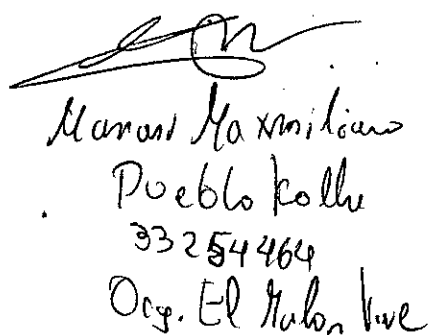 Mamani Maxmiliano
Pueblo Kolla
33254464
Org. El Malon Vive